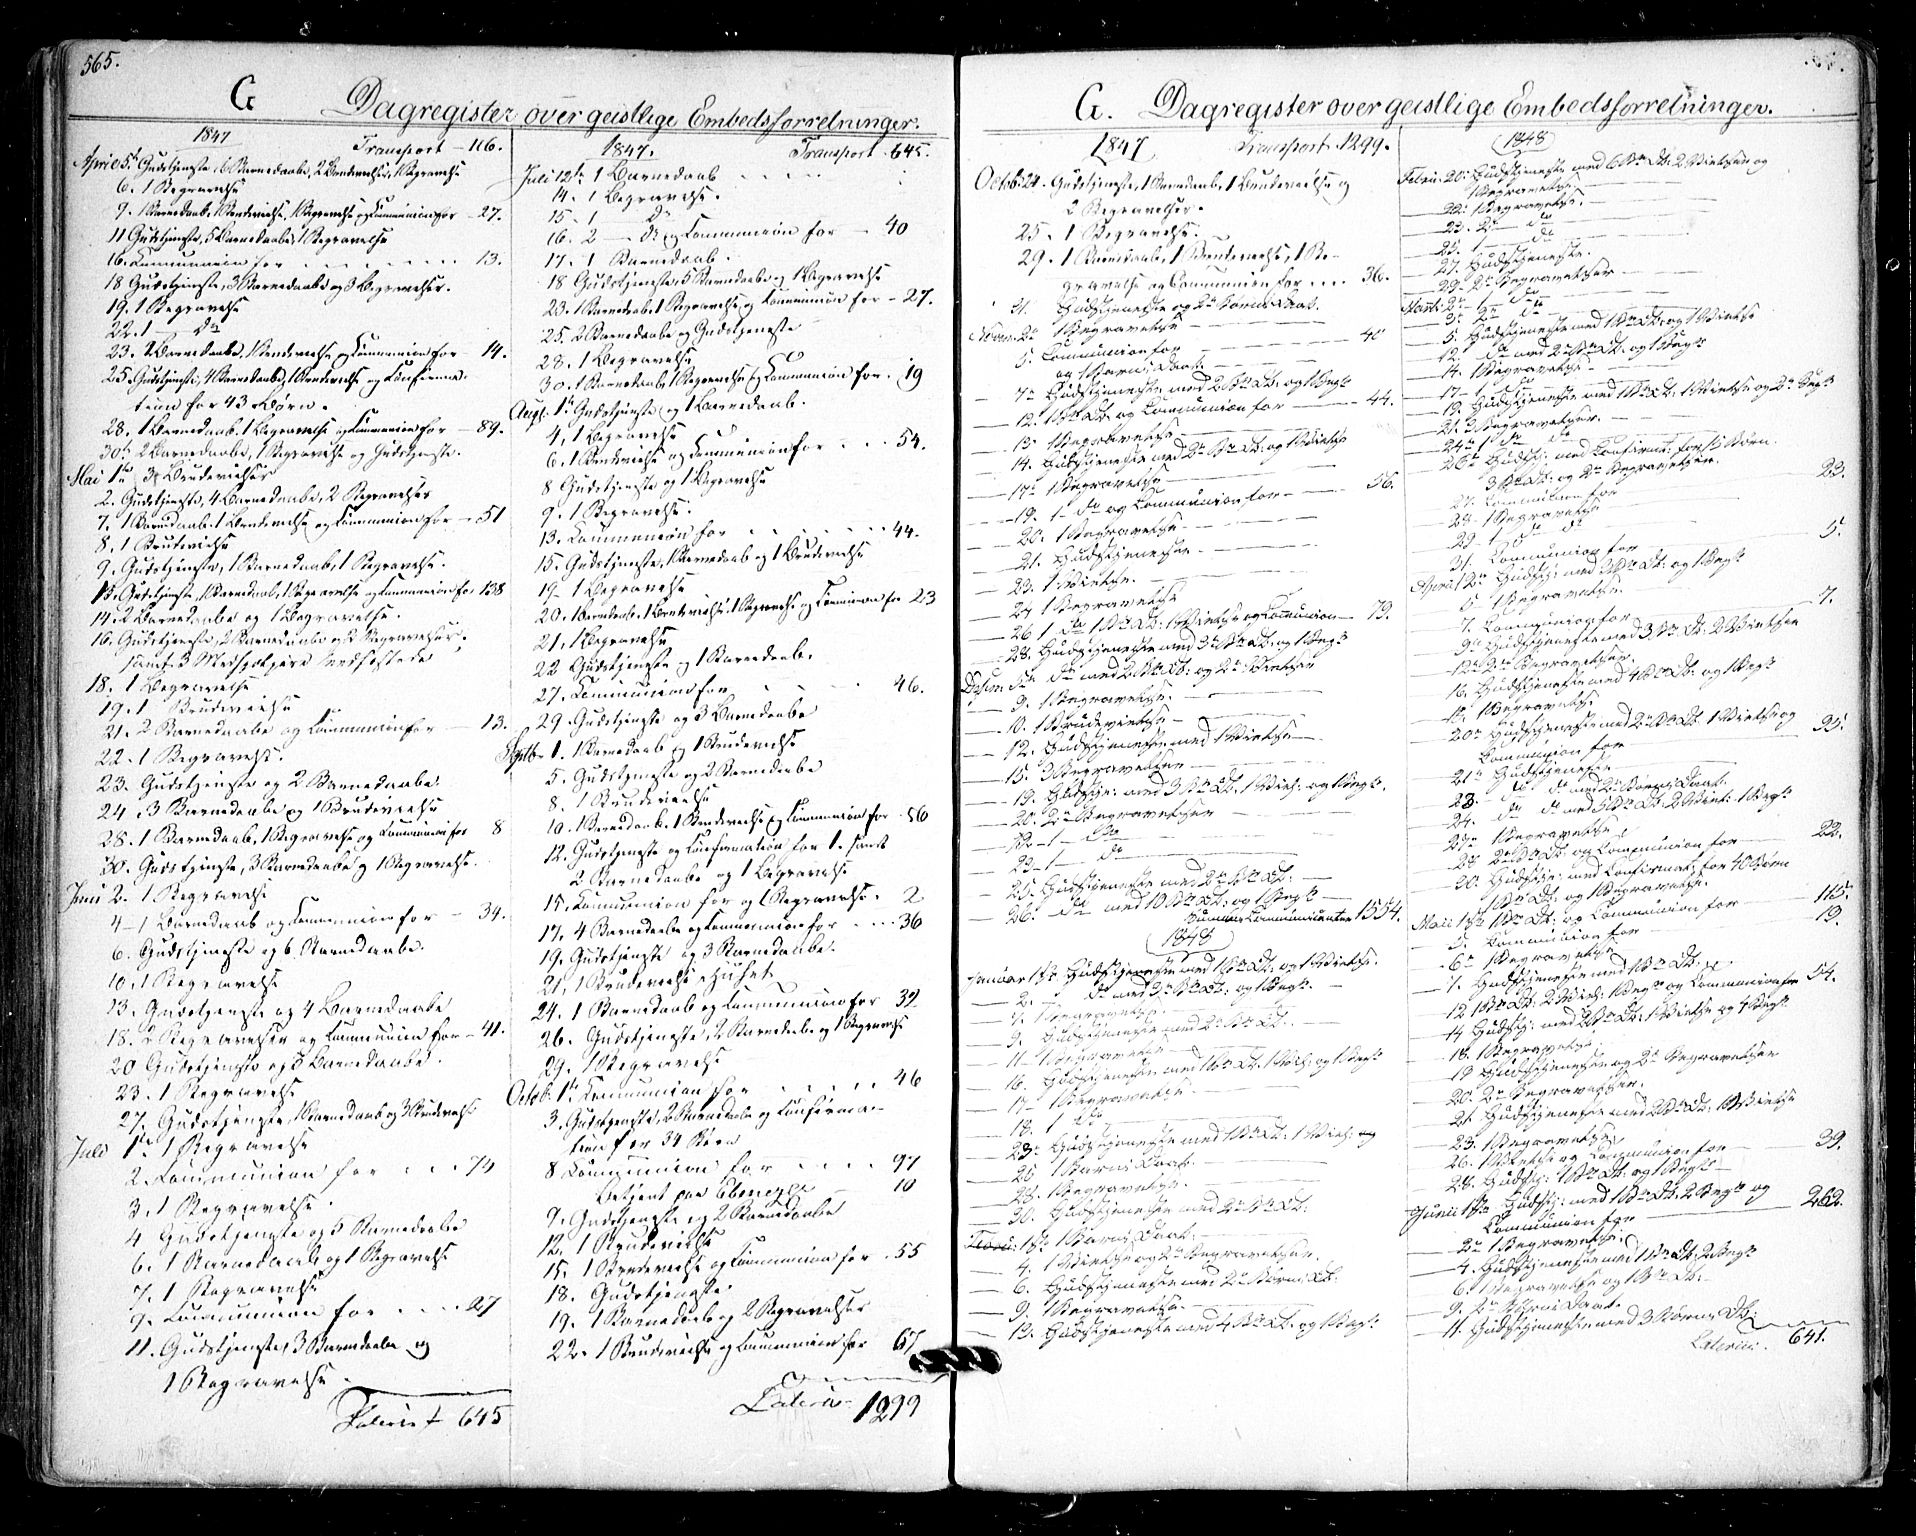 565.
G Dagregister over geistlige Embedsforretninger.
1847 Transport - 116.
April 5te Gudstjeneste, 6 Barnedaabe, 2 Brudevielser, 1 Begravelse
6. 1 Begravelse
9. 1 Barnedaab, 1 Brudevielse, 1 Begravelse og Communion for - 27.
11 Gudstjeneste, 5 Barnedaabe, 1 Begravelse
16. Communion for 13.
18 Gudstjeneste, 3 Barnedaabe og 3 Begravelser.
19. 1 Begravelse
22. 1 — do
23. 2 Barnedaabe, 1 Brudevielse og Communion for - 14.
25. Gudstjeneste, 4 Barnedaabe, 1 Brudevielse og Confirma-
tion for 43 Børn.
28. 1 Barnedaab, 1 Begravelse og Communion for - 89.
30te 2 Barnedaabe, 1 Begravelse og Gudstjeneste.
Mai 1te 3 Brudevielser
2. Gudstjeneste, 4 Barnedaabe, 2 Begravelser
7. 1 Barnedaab, 1 Brudevielse og Communion for - 51
8. 1 Brudevielse
9. Gudstjeneste, 1 Barnedaab, 1 Begravelse.
13. Gudstjeneste, 1 Barnedaab, 1 Begravelse og Communion for 138
14. 2 Barnedaabe og 1 Begravelse.
16. Gudstjeneste, 2 Barnedaabe og 2 Begravelser,
samt 3
18. 1 Begravelse
19. 1 Brudevielse
21. 2 Barnedaabe og Communion for - 13.
22. 1 Begravelse.
23. Gudstjeneste og 2 Barnedaabe.
24. 3 Barnedaabe og 1 Brudevielse
28. 1 Barnedaab, 1 Begravelse og Communion for 8
30. Gudstjeneste, 3 Barnedaabe og 1 Begravelse.
Juni 2. 1 Begravelse
4 - 1 Barnedaab og Communion for - 34.
6. Gudstjeneste og 6 Barnedaabe.
10. 1 Begravelse
13. Gudstjeneste og 4 Barnedaabe
18. 2 Begravelser og Communion for - 41.
20 Gudstjeneste og 3 Barnedaabe.
23. 1 Begravelse
27. Gudstjeneste, 1 Barnedaab og 3 Brudevielse
Juli 1te 1 Begravelse
2. Communion for 74
3. 1 Begravelse.
4 Gudstjeneste og 5 Barnedaabe
6. 1 Barnedaab og 1 Begravelse
7. 1 Begravelse
9. Communion for 27
11. Gudstjeneste, 3 Barnedaabe og
1 Begravelse.
Lateris 645
1847. Transport - 645.
Juli 12te 1 Barnedaab
14. 1 Begravelse.
15. 1 do
16. 2 — do og Communion for - 40
17. 1 Barnedaab.
18 Gudstjeneste, 5 Barnedaabe og 1 Begravelse
23. 1 Barnedaab, 1 Begravelse og Communion for - 27.
25. 2 Barnedaabe og Gudstjeneste
28. 1 Begravelse
30. 1 Barnedaab, 1 Begravelse og Communion for. 19
Augs. 1te Gudstjeneste og 1 Barnedaab.
4. 1 Begravelse
6. 1 Brudevielse og Communion for 54.
8 Gudstjeneste og 1 Begravelse
9. 1 Begravelse.
13. Communion for 44.
15. Gudstjeneste, 1 Barnedaab og 1 Brudevielse
19. 1 Begravelse
20. 1 Barnedaab, 1 Brudevielse, 1 Begravelse og Communion for 23
21. 1 Begravelse
22 Gudstjeneste og 1 Barnedaab.
27. Communion for 46.
29. Gudstjeneste og 3 Barnedaabe
Septbr 1. 1 Barnedaab og 1 Brudevielse
5. Gudstjeneste og 2 Barnedaabe
8. 1 Brudevielse
10. 1 Barnedaab, 1 Brudevielse og Communion for - 56
12. Gudstjeneste og Confirmation for 1. samt
2 Barnedaabe og 1 Begravelse
15. Communion for og 1 Begravelse. 2
17. 4 Barnedaabe og Communion for 36
19. Gudstjeneste og 3 Barnedaabe.
21. 1 Brudevielse i Huset
24. 1 Barnedaab og Communion for 32
26. Gudstjeneste, 2 Barnedaabe og 1 Begravelse
29. 1 Begravelse
Octob. 1te Communion for 46
3. Gudstjeneste, 2 Barnedaabe og Confirma-
tion for 34 Børn
8 Communion for 97
Betjent paa Ebenezer 10
9. Gudstjeneste og 2 Barnedaabe
12. 1 Brudevielse
15. 1 Brudevielse og Communion for. 55
18. Gudstjeneste.
19. 1 Barnedaab og 2 Begravelser
22. 1 Brudevielse og Communion for 67
Lateris 1299
G. Dagregister over geistlige Embedsforretninger.
1847 Transport 1299.
Octob: 24. Gudstjeneste, 1 Barnedaab, 1 Brudevielse og
2 Begravelser.
25. 1 Begravelse.
29. 1 Barnedaab, 1 Brudevielse, 1 Be-
gravelse og Communion for 36.
31. Gudstjeneste og 2de Børns Daab.
Novem: 2de 1 Begravelse
5. Communion for 40
og 1 Barns Daab.
7de Gudstjeneste med 2 Bns Db: og 1 Begr:
12. 1 Bns Db: og Communion for 44.
13. 1 Begravelse.
14. Gudstjeneste med 2de Bns Db: og 1 Vielse
17de 1 Begravelse
19. 1 - do og Communion for 56.
20. 1 Begravelse.
21. Gudstjeneste.
23. 1 Vielse.
24 1 Begravelse
26 1 do 1 Bns Db: 1 Vielse og Communion - 79.
28. Gudstjeneste med 3de Bns Db: og 1 Begr:
Decem: 5te do med 2 Bns Db: og 2de Vielser
9. 1 Begravelse.
10. 1 Brudevielse
12. Gudstjeneste med 1 Vielse
15. 3 Begravelser
19. Gudstje: med 3 Bns Db: 1 Viel: og 1 Begr:
20. 2de Begravelser
22 - 1 - do
23 - 1 - do
25. Gudstjeneste med 2de Bns Db:
26. do med 10 Bns Db: og 1 Begr:
Summa Communicanter 1554.
1848
Januar 1ste Gudstjeneste med 1 Bns Db: og 1 Vielse.
2. do med 3de Bns Db: og 1 Begr:
7. 1 Begravelse.
9. Gudstjeneste med 2de Bns Db:
11. 1 Begravelse
16. Gudstjeneste med 1 Bns Db. 1 Viel: og 1 Begr:
17 - 1 Begravelse.
18. 1 do
23. Gudstjeneste med 1 Bns Db: 1 Viel: og
25. 1 Barns Daab.
28. 1 Begravelse.
30. Gudstjeneste med 2de Bns Db:
Febru: 1ste 1 Barns Daab.
4. 1 Vielse og 2de Begravelser.
6. Gudstjeneste med 2de Børns Db:
9. 1 Begravelse.
13. Gudstjeneste med 4 Bns Db: og 1 Begr:
1848
Febru: 20. Gudstjeneste med 6 Bns Db: 2 Vielser og
1 Begravelse
22. 1 Begravelse.
23. 2de do
25. 1 — do
27. Gudstjeneste.
29. 2de Begravelser
Marti: 2de 1 - do
3. 2de do
5. Gudstjeneste med 1 Bns Db: og 1 Vielse
12. do med 2de Bns Db: og 1 Begr:
14. 1 Begravelse
17 - 1 do
19. Gudstjeneste med 1 Bns Db: 1 Vielse og 2de Begr:
21. 3 Begravelser.
24de 1 do do
26de Gudstj: med Confirmat: for 15 Børn
3 Bns Db: og 2de Begravelser.
27. Communion for 23.
28. 1 Begravelse
29. 1 do do
31. Communion for 5.
April 2de Gudstj: med 3 Bns Db: og 1 Begr:
6. 1 Begravelse.
7. Communion for 7.
9de Gudstjeneste med 3 Bns Db: 2 Vielser
12te 2de Begravelser.
16. Gudstjeneste med 4 Bns Db: og 1 Begr:
18. 1 Begravelse.
20de Gudstjeneste med 2de Bns Db. 1 Vielse og
Communion for 95.
21de Gudstjeneste
23. do do med 2de Børns Daab.
24. do do med 5 Bns Db: 2 Viel: 1 Begr:
27de 1 Begravelse
28 2de Bns Db: og Communion for 22.
30. Gudstje: med Confirmat: for 40 Børn
1 Bns Db: og 1 Begravelse.
Maii 1ste 1 Bns Db: og Communion for 115.
5. Communion for 19.
6te 1 Begravelse
7. Gudstjeneste med 1 Bns Db:
12 1 Bns Db: 2 Viel: 1 Begr: og Communion for 54.
14 Gudstj: med 2 Bns Db: 1 Vielse og 4 Begr:
18. 1 Begravelse
19 Gudstjeneste og 2de Begravelser
20. 2de Begravelser.
21. Gudstjeneste med 2 Bns Db: 1 Vielse
23. 1 Begravelse
26. 1 Vielse og Communion for 39.
28. Gudstj: 1 Bns Db: og 1 Begr:
Junii 1ste Gudstj: med 1 Bns Db: 2 Begr: og
Communion for 262.
2de 1 Begravelse.
4. Gudstjeneste med 1 Bns Db: 2 Begr:
6. 1 Begravelse og 1 Bns Db:
9. 2de Børns Daab.
11. Gudstjeneste med 3 Børns Db:
Lateris: 641.